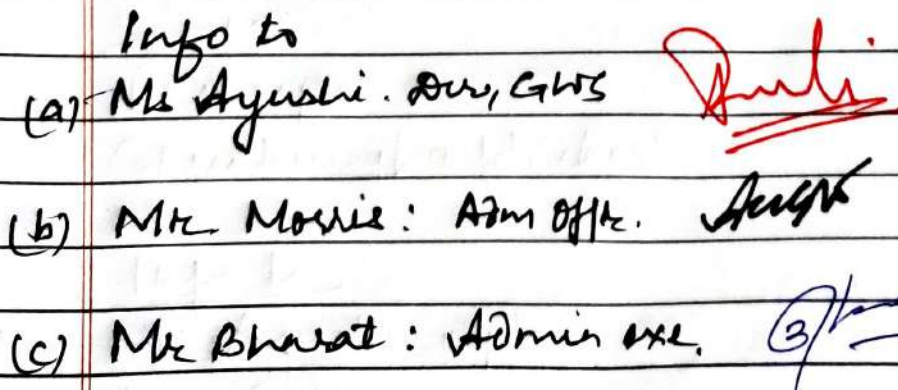 Info to
(a) Ms Ayushi. Dir, GWS
(b) Mr. Morris: Adm Offr.
(c) Mr Bharat: Admin exe.